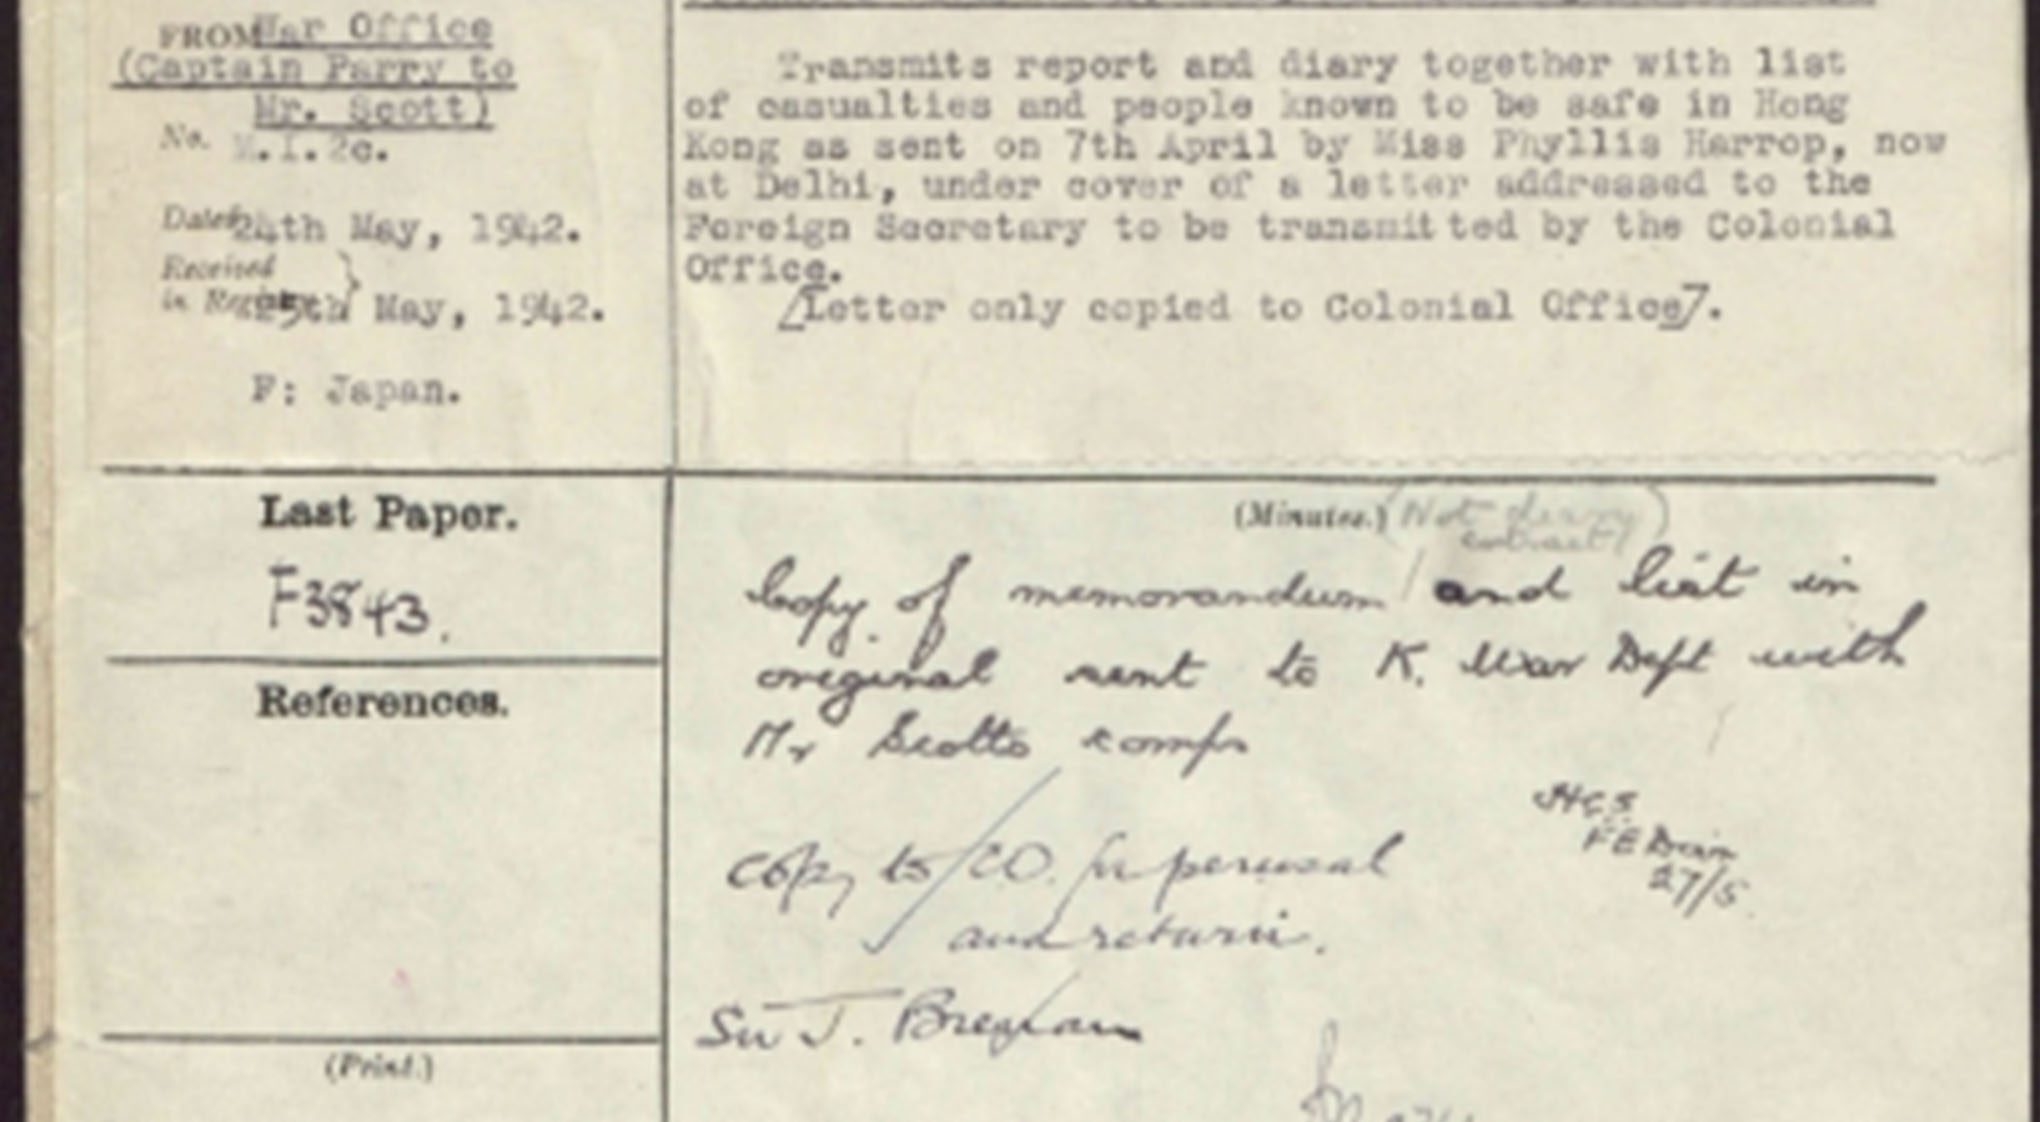 FROM War Office
(Captain Parry to
Mr. Scott)
No. M.I.2c.
Dated 24th May, 1942.
Received
in Registry 25th May, 1942.
F: Japan.
Transmits report and diary together with list
of casualties and people known to be safe in Hong
Kong as sent on 7th April by Miss Phyllis Harrop, now
at Delhi, under cover of a letter addressed to the
Foreign Secretary to be transmitted by the Colonial
Office.
[Letter only copied to Colonial Office].
Last Paper.
F3843.
References.
(Print.)
(Minutes.) (Not diary
extract)
Copy of memorandum and list in
original sent to K. War Dept with
Mr Scotts comps
HCS
FE
27/5
Copy to CO. for perusal
and return.
Sir J. Brenan